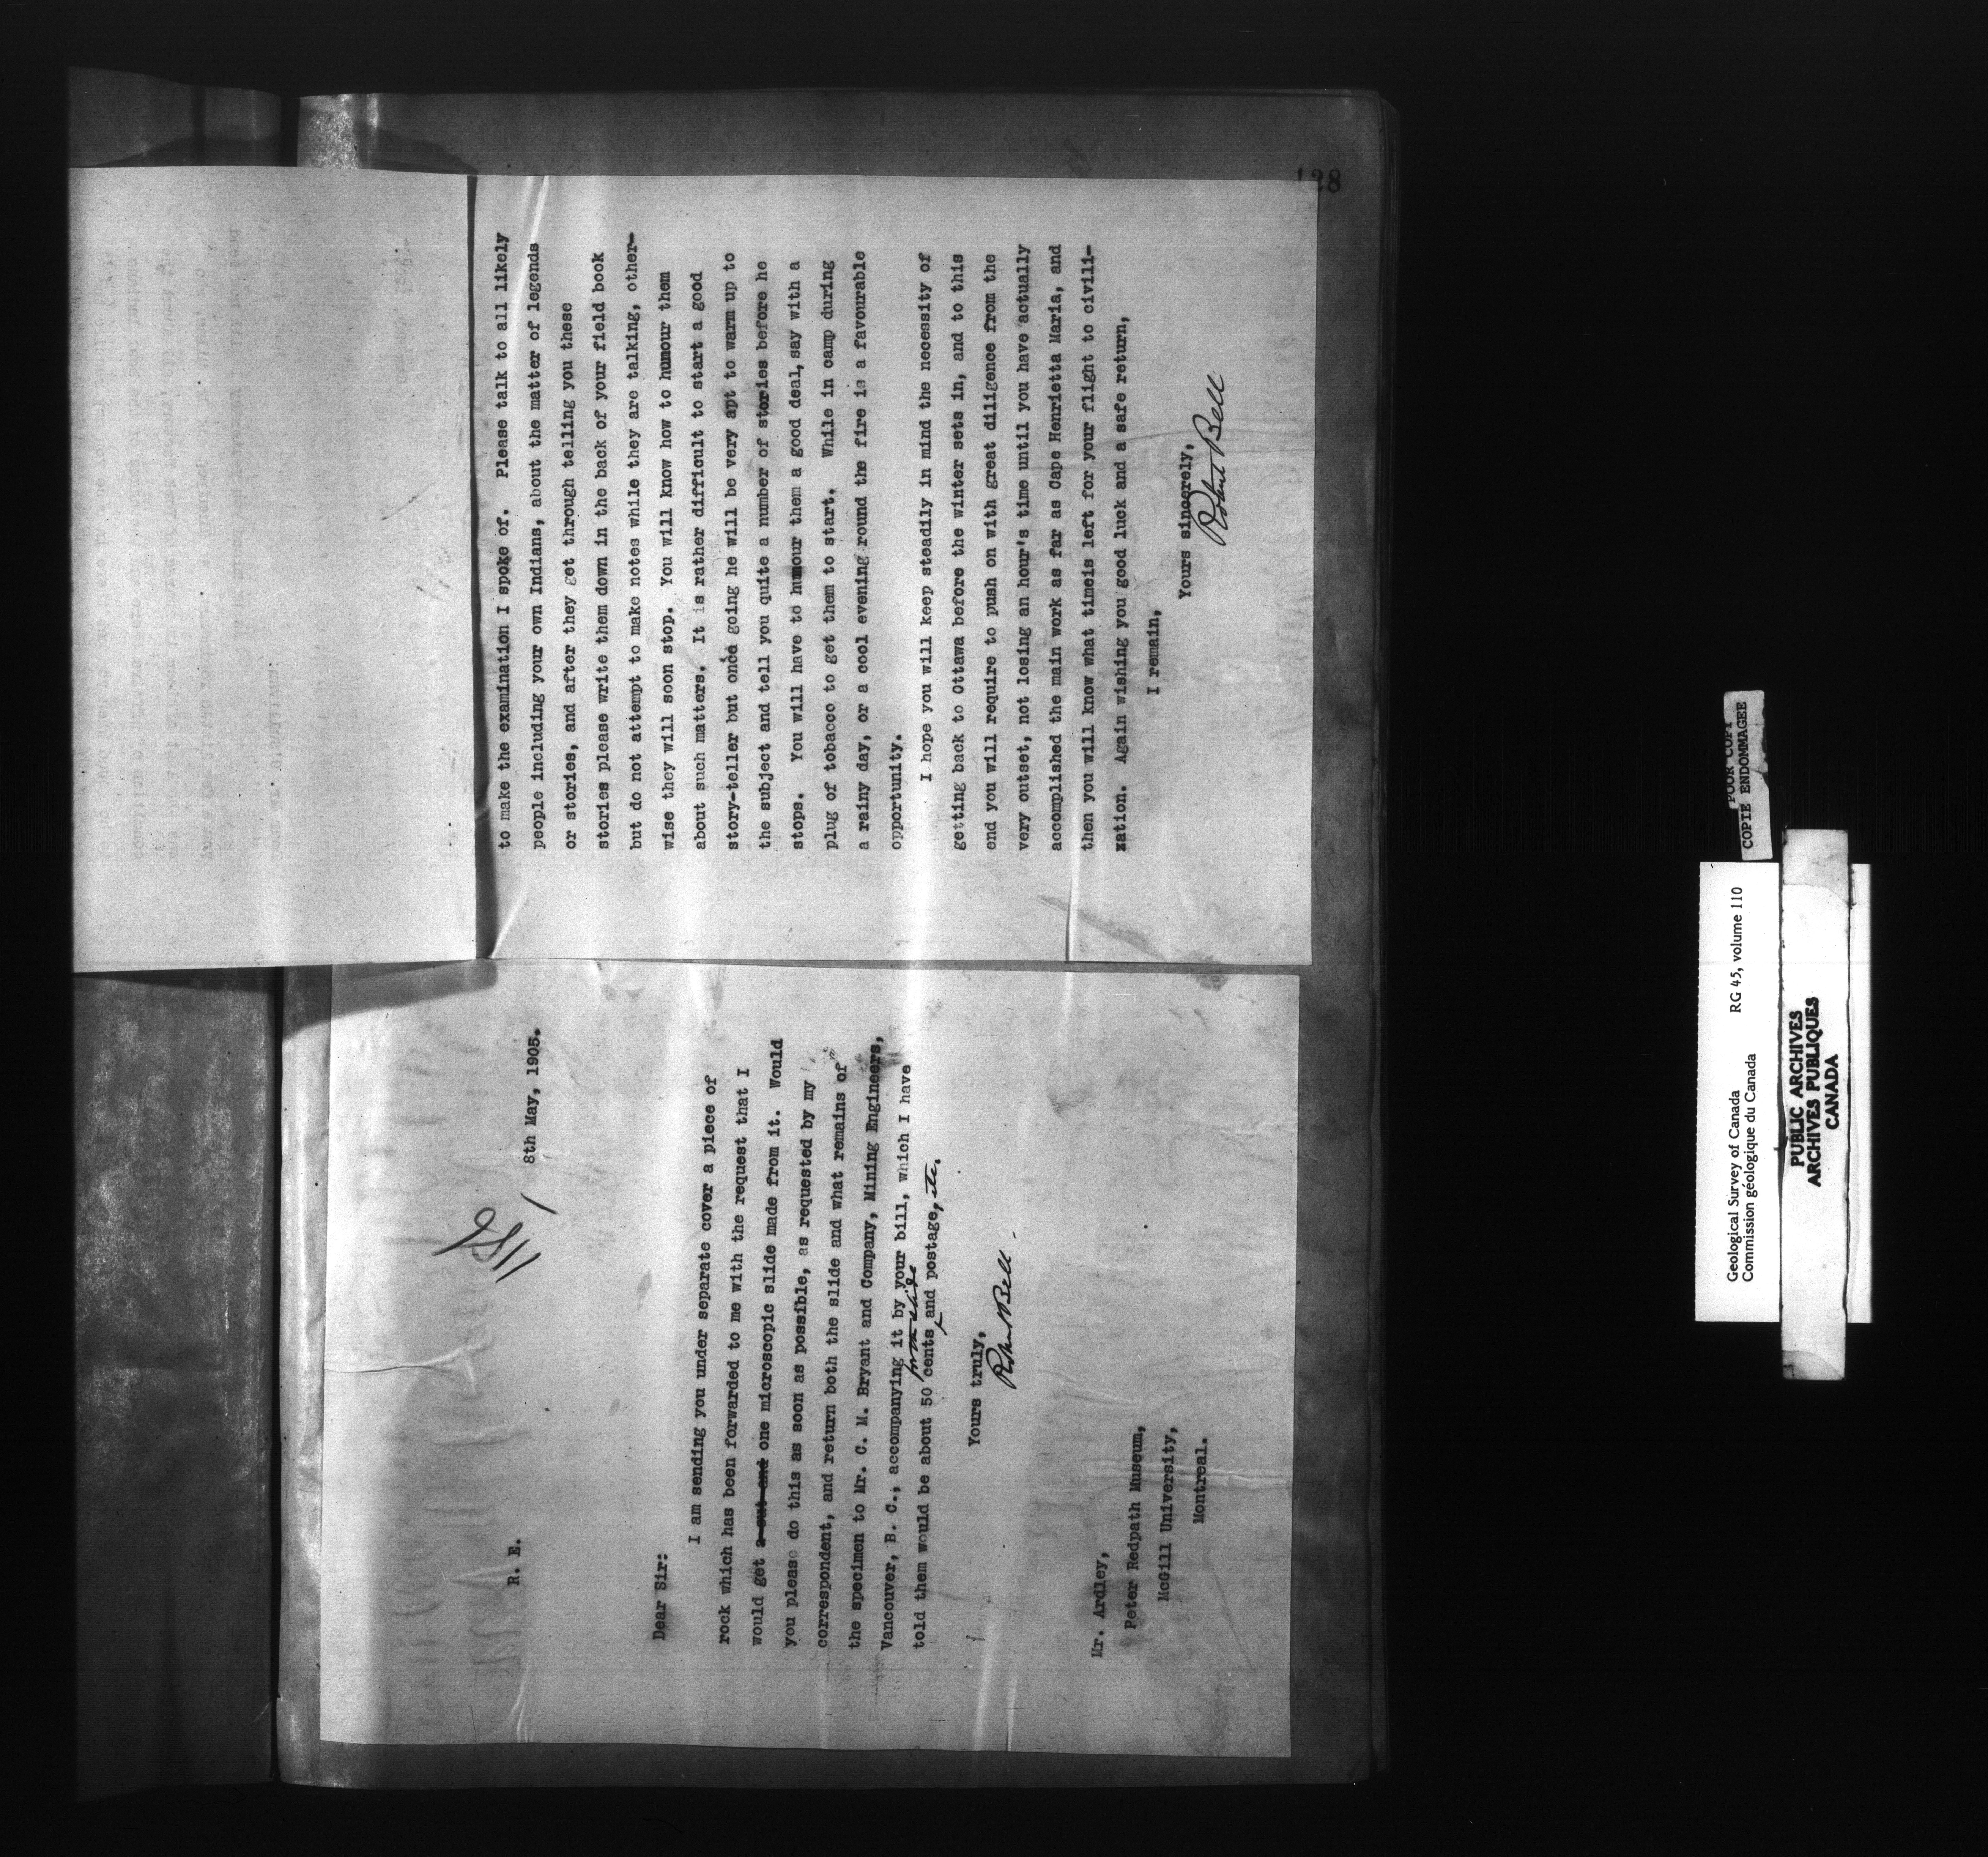 1186
8th May, 1905.
R. E.
Dear Sir:
I am sending you under separate cover a piece of
rock which has been forwarded to me with the request that I
would get a cut and one microscopic slide made from it. Would
you please do this as soon as possible, as requested by my
correspondent, and return both the slide and what remains of
the specimen to Mr. C. M. Bryant and Company, Mining Engineers,
Vancouver, B. C., accompanying it by your bill, which I have
told them would be about 50 cents for the slide and postage, etc.
Yours truly,
Robert Bell
Mr. Ardley,
Peter Redpath Museum,
McGill University,
Montreal.
128
to make the examination I spoke of. Please talk to all likely
people including your own Indians, about the matter of legends
or stories, and after they get through telling you these
stories please write them down in the back of your field book
but do not attempt to make notes while they are talking, other-
wise they will soon stop. You will know how to humour them
about such matters. It is rather difficult to start a good
story-teller but once going he will be very apt to warm up to
the subject and tell you quite a number of stories before he
stops. You will have to humour them a good deal, say with a
plug of tobacco to get them to start. While in camp during
a rainy day, or a cool evening round the fire is a favourable
opportunity.
I hope you will keep steadily in mind the necessity of
getting back to Ottawa before the winter sets in, and to this
end you will require to push on with great diligence from the
very outset, not losing an hour's time until you have actually
accomplished the main work as far as Cape Henrietta Maria, and
then you will know what timeis left for your flight to civili-
zation. Again wishing you good luck and a safe return,
I remain,
Yours sincerely,
Robert Bell
Geological Survey of Canada RG 45, volume 110
Commission géologique du Canada
POOR COPY
COPIE ENDOMMAGEE
PUBLIC ARCHIVES
ARCHIVES PUBLIQUES
CANADA